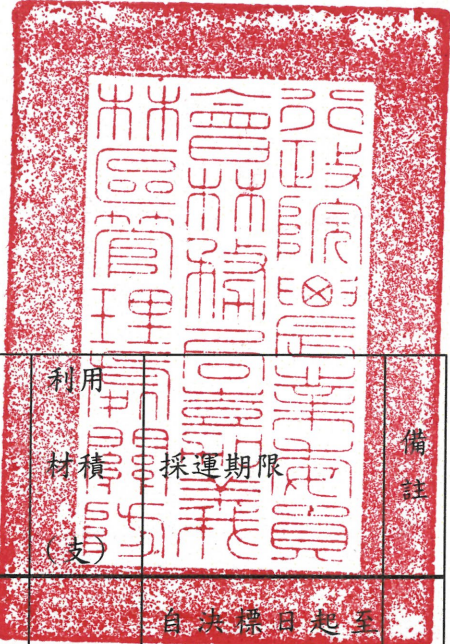 行政院農業委員
會林務局嘉義
林區管理處關防
利用
材積
(支)
採運期限
備註
自決標日起至